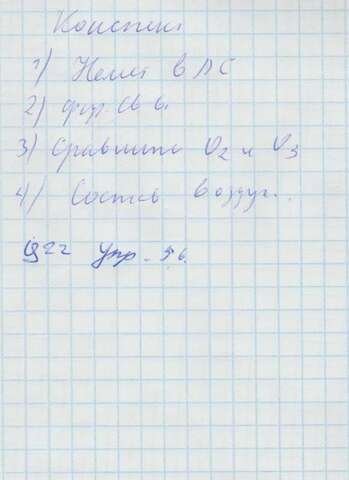 Конспект
1) Неме в ПС
2) физ. св в.
3) Сравнить O2 и O3
4) Состав воздух.
§22 Упр. 5,6.